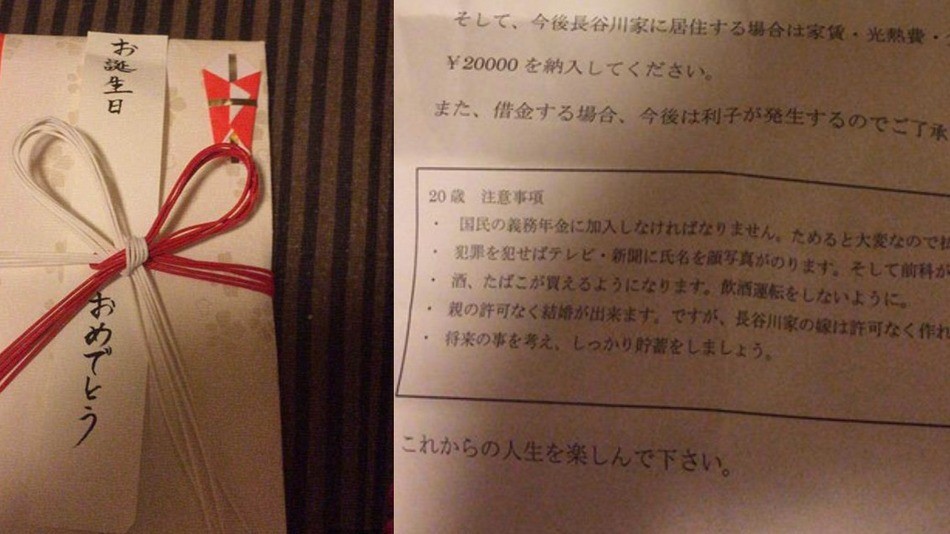 お誕生日
おめでとう
そして、今後長谷川家に居住する場合は家賃・光熱費・
¥20000を納入してください。
また、借金する場合、今後は利子が発生するのでご了承
20歳 注意事項
・ 国民の義務年金に加入しなければなりません。ためると大変なので
・ 犯罪を犯せばテレビ・新聞に氏名を顔写真がのります。そして前科が
・ 酒、たばこが買えるようになります。飲酒運転をしないように。
・ 親の許可なく結婚が出来ます。ですが、長谷川家の嫁は許可なく作れ
・ 将来の事を考え、しっかり貯蓄をしましょう。
これからの人生を楽しんで下さい。